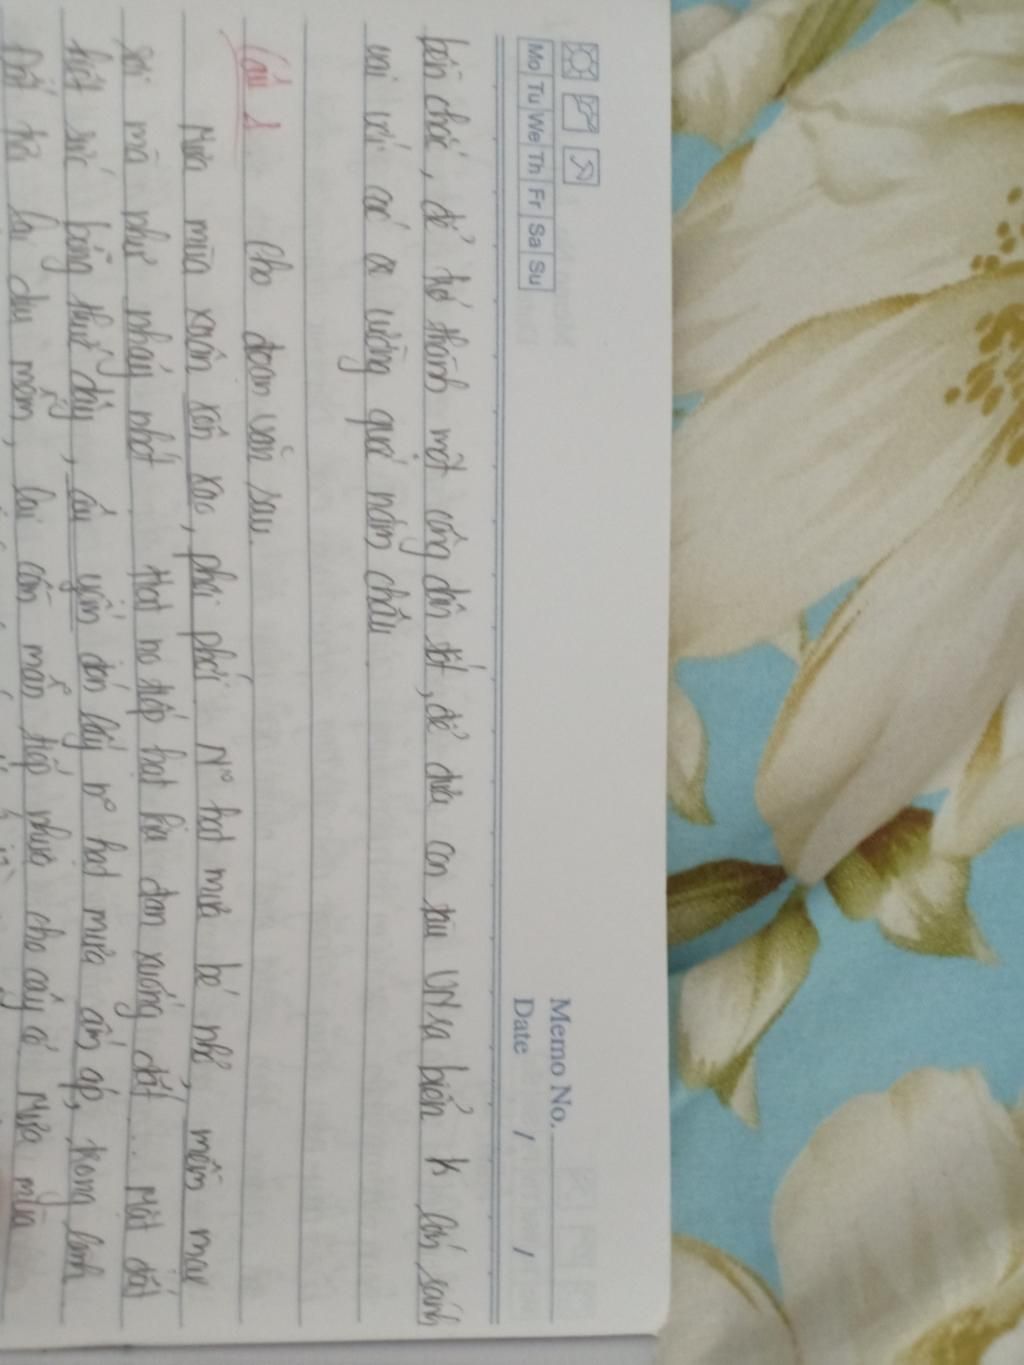 Memo No.
Mo Tu We Th Fr Sa Su
Date / /
bến chắc, để trở thành một công dân tốt, để đưa con tàu VN ra biển k lớn sánh
vai với các cường quốc năm châu.
Câu 1 Cho đoạn văn sau.
Mưa mùa xuân xôn xao, phơi phới. N° hạt mưa bé nhỏ, mềm mại
rơi mà như nhảy nhót. Hạt nọ tiếp hạt kia đan xuống đất... Mặt đất
kiệt sức bỗng thức dậy, âu yếm đón lấy n° hạt mưa ấm áp, trong lành.
Đất trời lại dịu mềm, lại cần mẫn tiếp nhựa cho cây cỏ. Mưa mùa